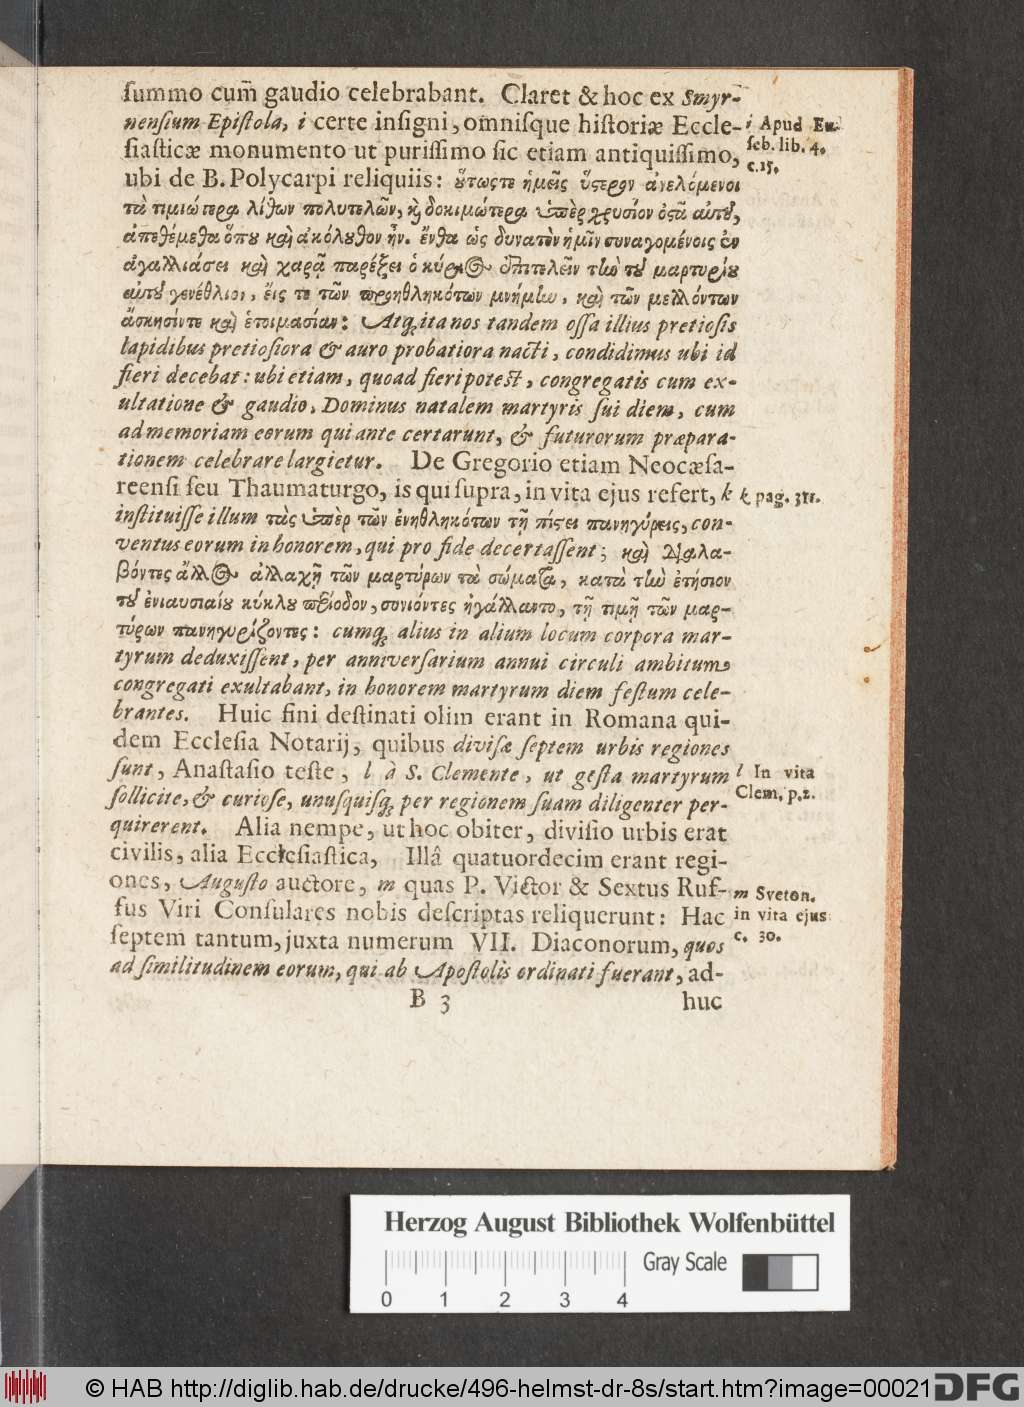 ſummo cum̃ gaudio celebrabant. Claret & hoc ex Smyr-
nenſium Epiſtola, i certe inſigni, omniſque hiſtoriæ Eccle-
i Apud Eu-
ſeb. lib. 4.
c. 15.
ſiaſticæ monumento ut puriſſimo ſic etiam antiquiſſimo,
ubi de B. Polycarpi reliquiis: ὅτωςτε ἡμεῖς ὕςερον ἀνελόμενοι
τὰ τιμιώτερα λίθων πολυτελῶν, καὶ δοκιμώτερα ὑπὲρ χρυσίον ὀςᾶ αὐτȣ͂,
ἀπεθέμεθα ὅπȣ καὶ ἀκόλȣθον ἦν. ἔνθα ὡς δυνατὸν ἡμῖν συναγομένοις ἐν
ἀγαλλιάσει καὶ χαρᾷ παρέξει ὁ κύριος ἐπιτελεῖν τὴν τȣ͂ μαρτυρίȣ
αὐτȣ͂ γενέθλιον, ἔις τε τῶν προηθληκότων μνήμην, καὶ τῶν μελλόντων
ἄσκησίντε καὶ ἑτοιμασίαν: Atq; ita nos tandem oſſa illius pretioſis
lapidibus pretioſiora & auro probatiora nacti, condidimus ubi id
fieri decebat: ubi etiam, quoad fieri poteſt, congregatis cum ex-
ultatione & gaudio, Dominus natalem martyris ſui diem, cum
ad memoriam eorum qui ante certarunt, & futurorum præpara-
tionem celebrare largietur. De Gregorio etiam Neocæſa-
reenſi ſeu Thaumaturgo, is qui ſupra, in vita ejus refert, k
k pag. 311.
inſtituiſſe illum τὰς ὑπὲρ τῶν ἐνηθληκότων τῇ πίςει πανηγύρεις, con-
ventus eorum in honorem, qui pro fide decertaſſent; καὶ διαλα-
βόντες ἄλλος ἀλλαχῇ τῶν μαρτύρων τὰ σώματα, κατὰ τὴν ἐτήσιον
τȣ͂ ἐνιαυσιαίȣ κύκλȣ περίοδον, συνιόντες ἠγάλλοντο, τῇ τιμῇ τῶν μαρ-
τύρων πανηγυρίζοντες: cumq; alius in alium locum corpora mar-
tyrum deduxiſſent, per anniverſarium annui circuli ambitum
congregati exultabant, in honorem martyrum diem feſtum cele-
brantes. Huic fini deſtinati olim erant in Romana qui-
dem Eccleſia Notarij, quibus diviſæ ſeptem urbis regiones
ſunt, Anaſtaſio teſte, l à S. Clemente, ut geſta martyrum
l In vita
Clem. p. 2.
ſollicite, & curioſe, unuſquiſq; per regionem ſuam diligenter per-
quirerent. Alia nempe, ut hoc obiter, diviſio urbis erat
civilis, alia Eccleſiaſtica, Illâ quatuordecim erant regi-
ones, Auguſto auctore, m quas P. Victor & Sextus Ruf-
m Sveton.
in vita ejus
c. 30.
fus Viri Conſulares nobis deſcriptas reliquerunt: Hac
ſeptem tantum, juxta numerum VII. Diaconorum, quos
ad ſimilitudinem eorum, qui ab Apoſtolis ordinati fuerant, ad-
B 3
huc
Herzog August Bibliothek Wolfenbüttel
Gray Scale
0 1 2 3 4
© HAB http://diglib.hab.de/drucke/496-helmst-dr-8s/start.htm?image=00021
DFG